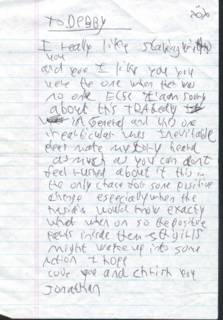 To DEBBY
I really like staking with
you
and you I like you you
were the one when there was
no one ELSE I am sorry
about this TRAGedy I
in General and this one
in particular was Inevitable
as much as you can dont
feel rushed about it this is
the only chace for some positive
change especially when the
would know exactly
what when on so the positive
inside them
might wake up into some
action I hope
love you and chrish you
Jonathan